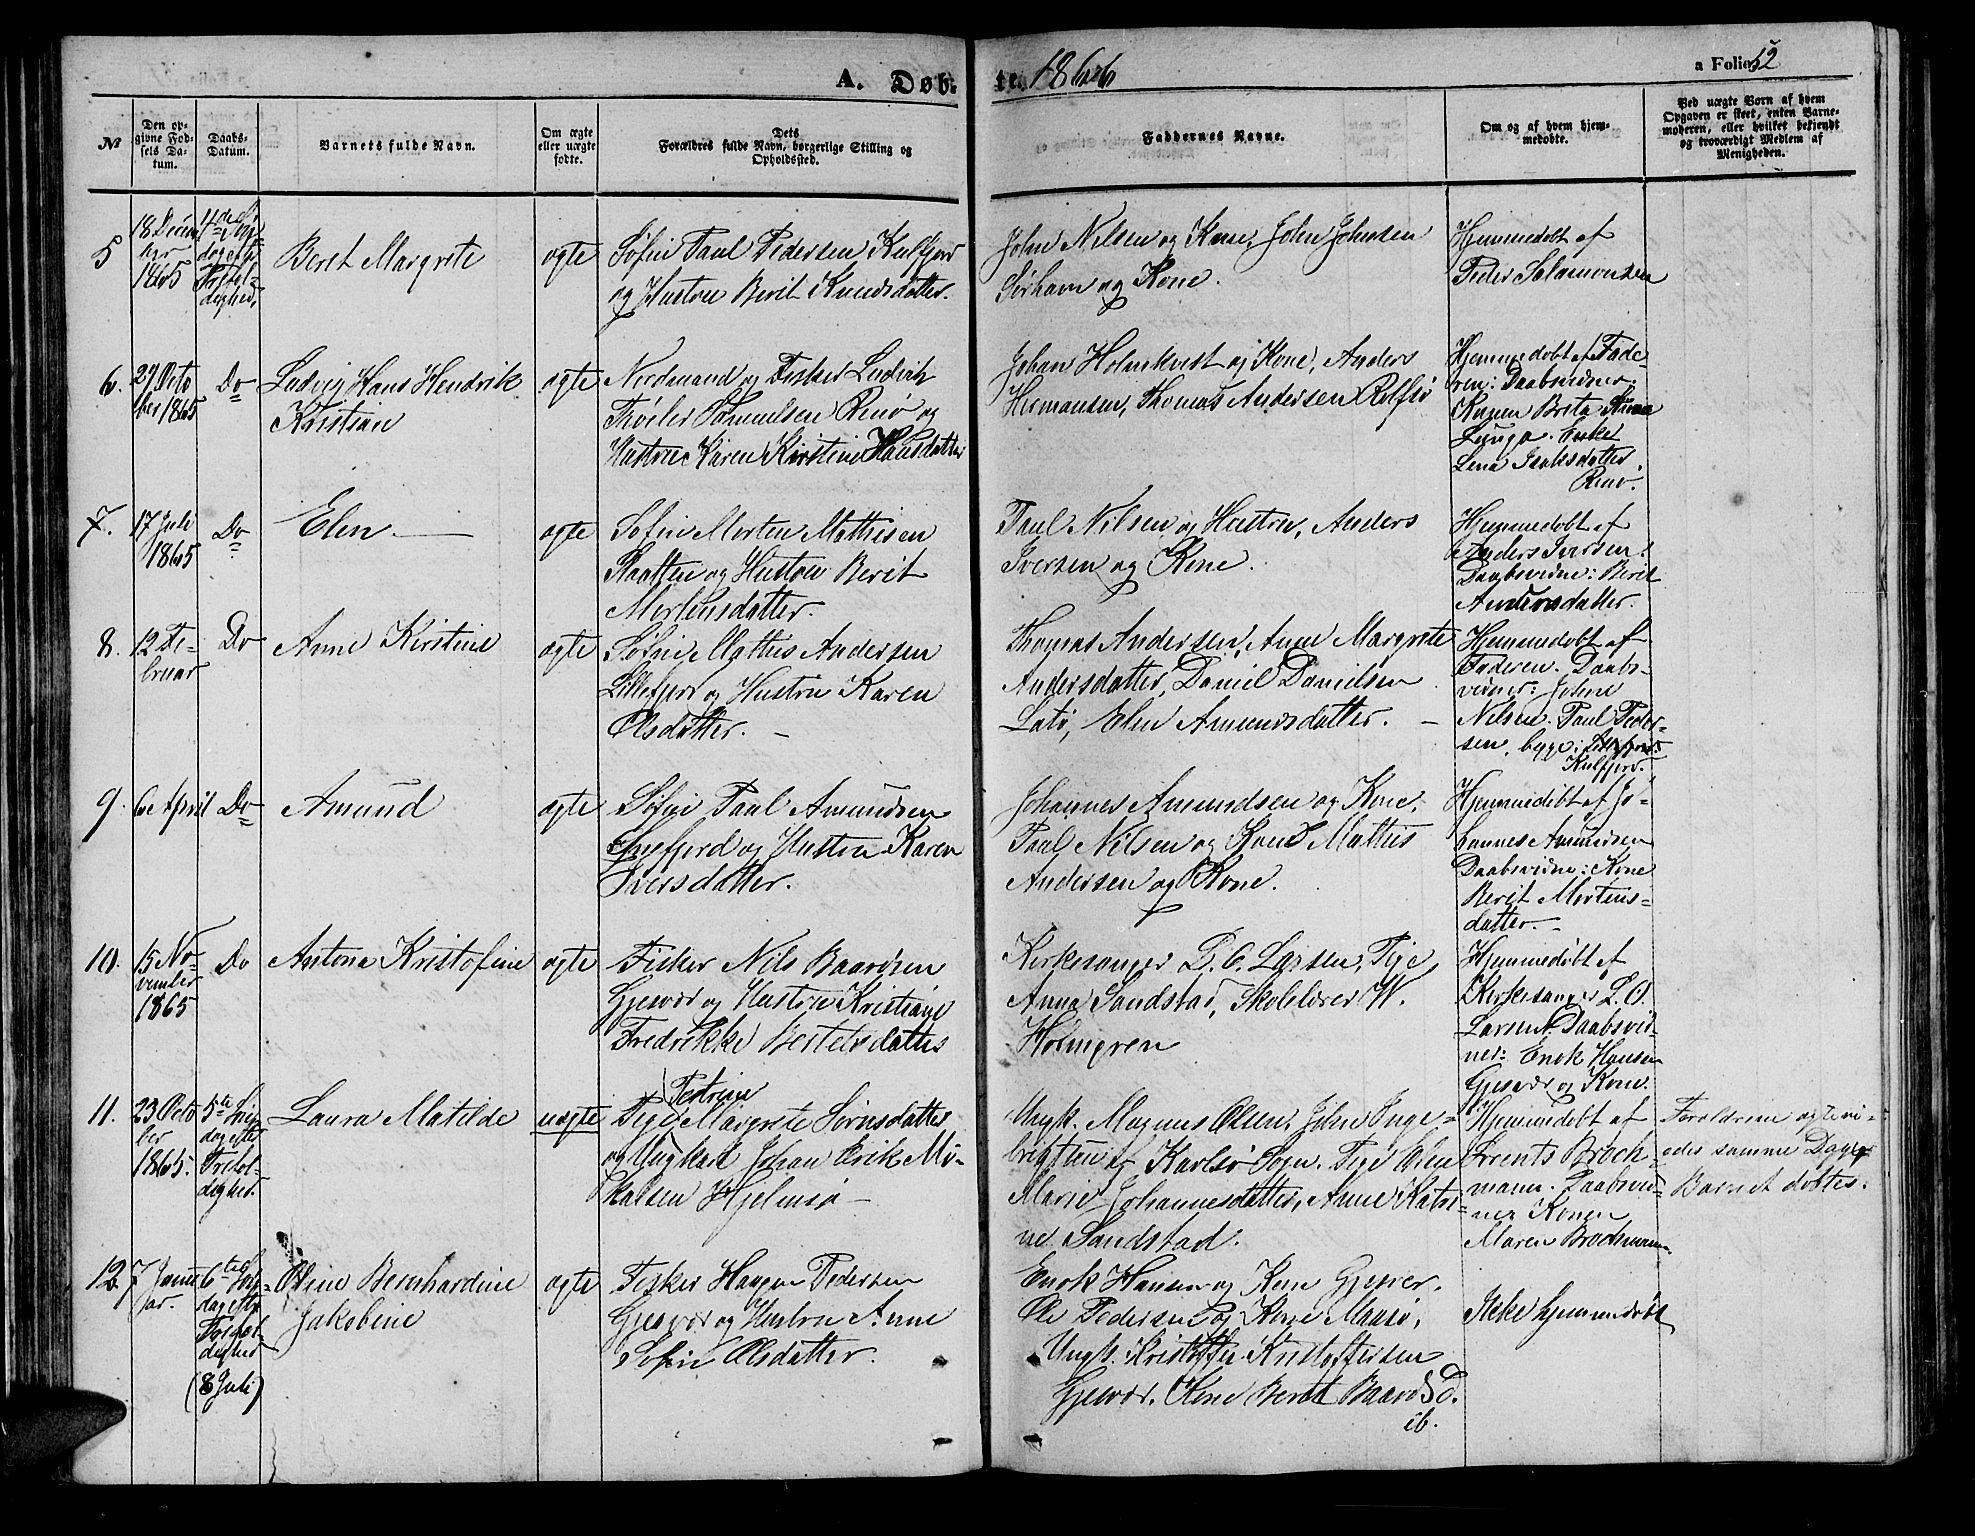 A. Døb-
te. 1866
a Folio 12
№
Den op-
givne Fød-
sels Da-
tum.
Daabs-
Datum.
Barnets fulde Navn.
Om ægte
eller uægte
fødte.
Dets
Forældres fulde Navn, borgerlige Stilling og
Opholdssted.
Faddernes Navne.
Om og af hvem hjem-
medøbte.
Ved uægte Børn af hvem
Opgaven er skeet, enten Barne-
moderen, eller hvilket bekjendt
og troværdigt Medlem af
Menigheden.
5
18 Decem
ber
1865
4de Søn-
dag efter
Trefol-
dighed.
Beret Margrete
ægte
Søfin Paul Pedersen Kulfjord
og Hustru Berit Knudsdatter.
John Nilsen og Kone, John Johnsen
Sørhavn og Kone.
Hjemmedøbt af
Peder Salamonsen
6.
29 Octo
ber 1865
Do
Ludvig Hans Hendrik
Kristian
ægte
Nordmand og Fisker Ludvik
Samuelsen Renø og
Hustru Karen Kirstine Hansdatter
Johan Holmkvist og Kone, Anders
Hermansen, Thomas Andersen Rolfsø
Hjemmedøbt af Fade-
ren: Daabsvidner:
Konen Brita
Enke
Lena Isaksdatter
Renø.
7.
17 Juli
1865
Do
Elen
ægte
Søfin Morten Mathisen
Slaatten og Hustru Berit
Mortensdatter.
Paul Nilsen og Hustru, Anders
Iversen og Kone.
Hjemmedøbt af
Anders Iversen.
Daabsvidne: Berit
Andersdatter.
8.
12 Fe-
bruar
Do
Anne Kirstine
ægte
Søfin Mattis Andersen
Lillefjord og Hustru Karen
Olsdatter.
Thomas Andersen, Anne Margrete
Andersdatter, Daniel Danielsen
Latø, Elen Amundsdatter.
Hjemmedøbt af
Faderen. Daabs-
vidner: John
Nilsen. Paul Peder-
sen, begge:
Kulfjord.
9.
6 April
Do
Amund
ægte
Søfin Paul Amundsen
Snefjord og Hustru Karen
Iversdatter.
Johannes Amundsen og Kone,
Paul Nilsen og Kone Mattis
Andersen og Kone.
Hjemmedøbt af Jo-
hannes Amundsen
Daabsvidne: Kone
Berit Mortens-
datter.
10.
15 No-
vember
1865
Do
Antona Kristofine
ægte
Fisker Nils Baardsen
Gjesvær og Hustru Kristiane
Fredrikke Bertelsdatter
Kirkesanger L. O. Larsen, Pige
Anna Sandstad, Skolelærer W.
Holmgren
Hjemmedøbt af
Kirkesanger L. O.
Larsen. Daabsvid-
ner: Enok Hansen
Gjesvær og Kone.
11.
23 Octo
ber
1865.
5te Søn-
dag efter
Trefol-
dighed.
Laura Matilde
uægte
Petrine
Pige Margrete Sørnsdatter
og Ungkarl Johan Erik Mi-
kalsen Hjelmsø
Ungk. Magnus Olsen, John Inge-
brigtsen af Karlsø Sogn. Pige Elen
Marie Johannesdatter, Anne Katri-
ne Sandstad.
Hjemmedøbt af
Lorents Brock-
mann. Daabsvid-
ner Konen
Maren Brockmann.
Forældrene ægtevi-
edes samme Dag
Barnet døbtes.
12
7 Janu
ar.
6te Søn-
dag efter
Trefol-
dighed
(8 Juli)
Oline Bernhardine
Jakobine
ægte
Fisker Hagen Pedersen
Gjesvær og Hustru Anne
Sofie Olsdatter.
Enok Hansen og Kone Gjesvær.
Ole Pedersen og Kone Maasø,
Ungk. Kristoffer Kristoffersen
Gjesvær. Oline Berit Baards D.
ib.
Ikke hjemmedøbt